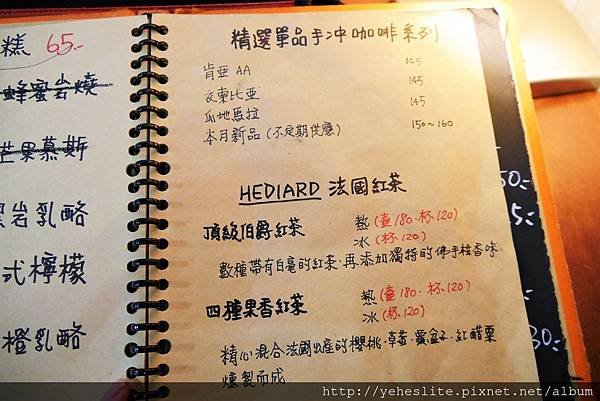 糕 65.-
蜂蜜岩燒
芒果慕斯
岩乳酪
式檸檬
橙乳酪
精選單品手冲咖啡系列
肯亞 AA 145
衣索比亞 145
瓜地馬拉 145
本月新品 (不定期供應) 150~160
HEDIARD 法國紅茶
頂級伯爵紅茶 熱 (壺 180. 杯 120)
冰 (杯 120)
數種帶有白毫的紅茶.再添加獨特的佛手柑香味.
四種果香紅茶 熱 (壺 180. 杯 120)
冰 (杯 120)
精心混合法國出產的櫻桃.草莓.覆盆子.紅醋栗
燻製而成
50:-
5:-
30:-
http://yeheslite.pixnet.net/album